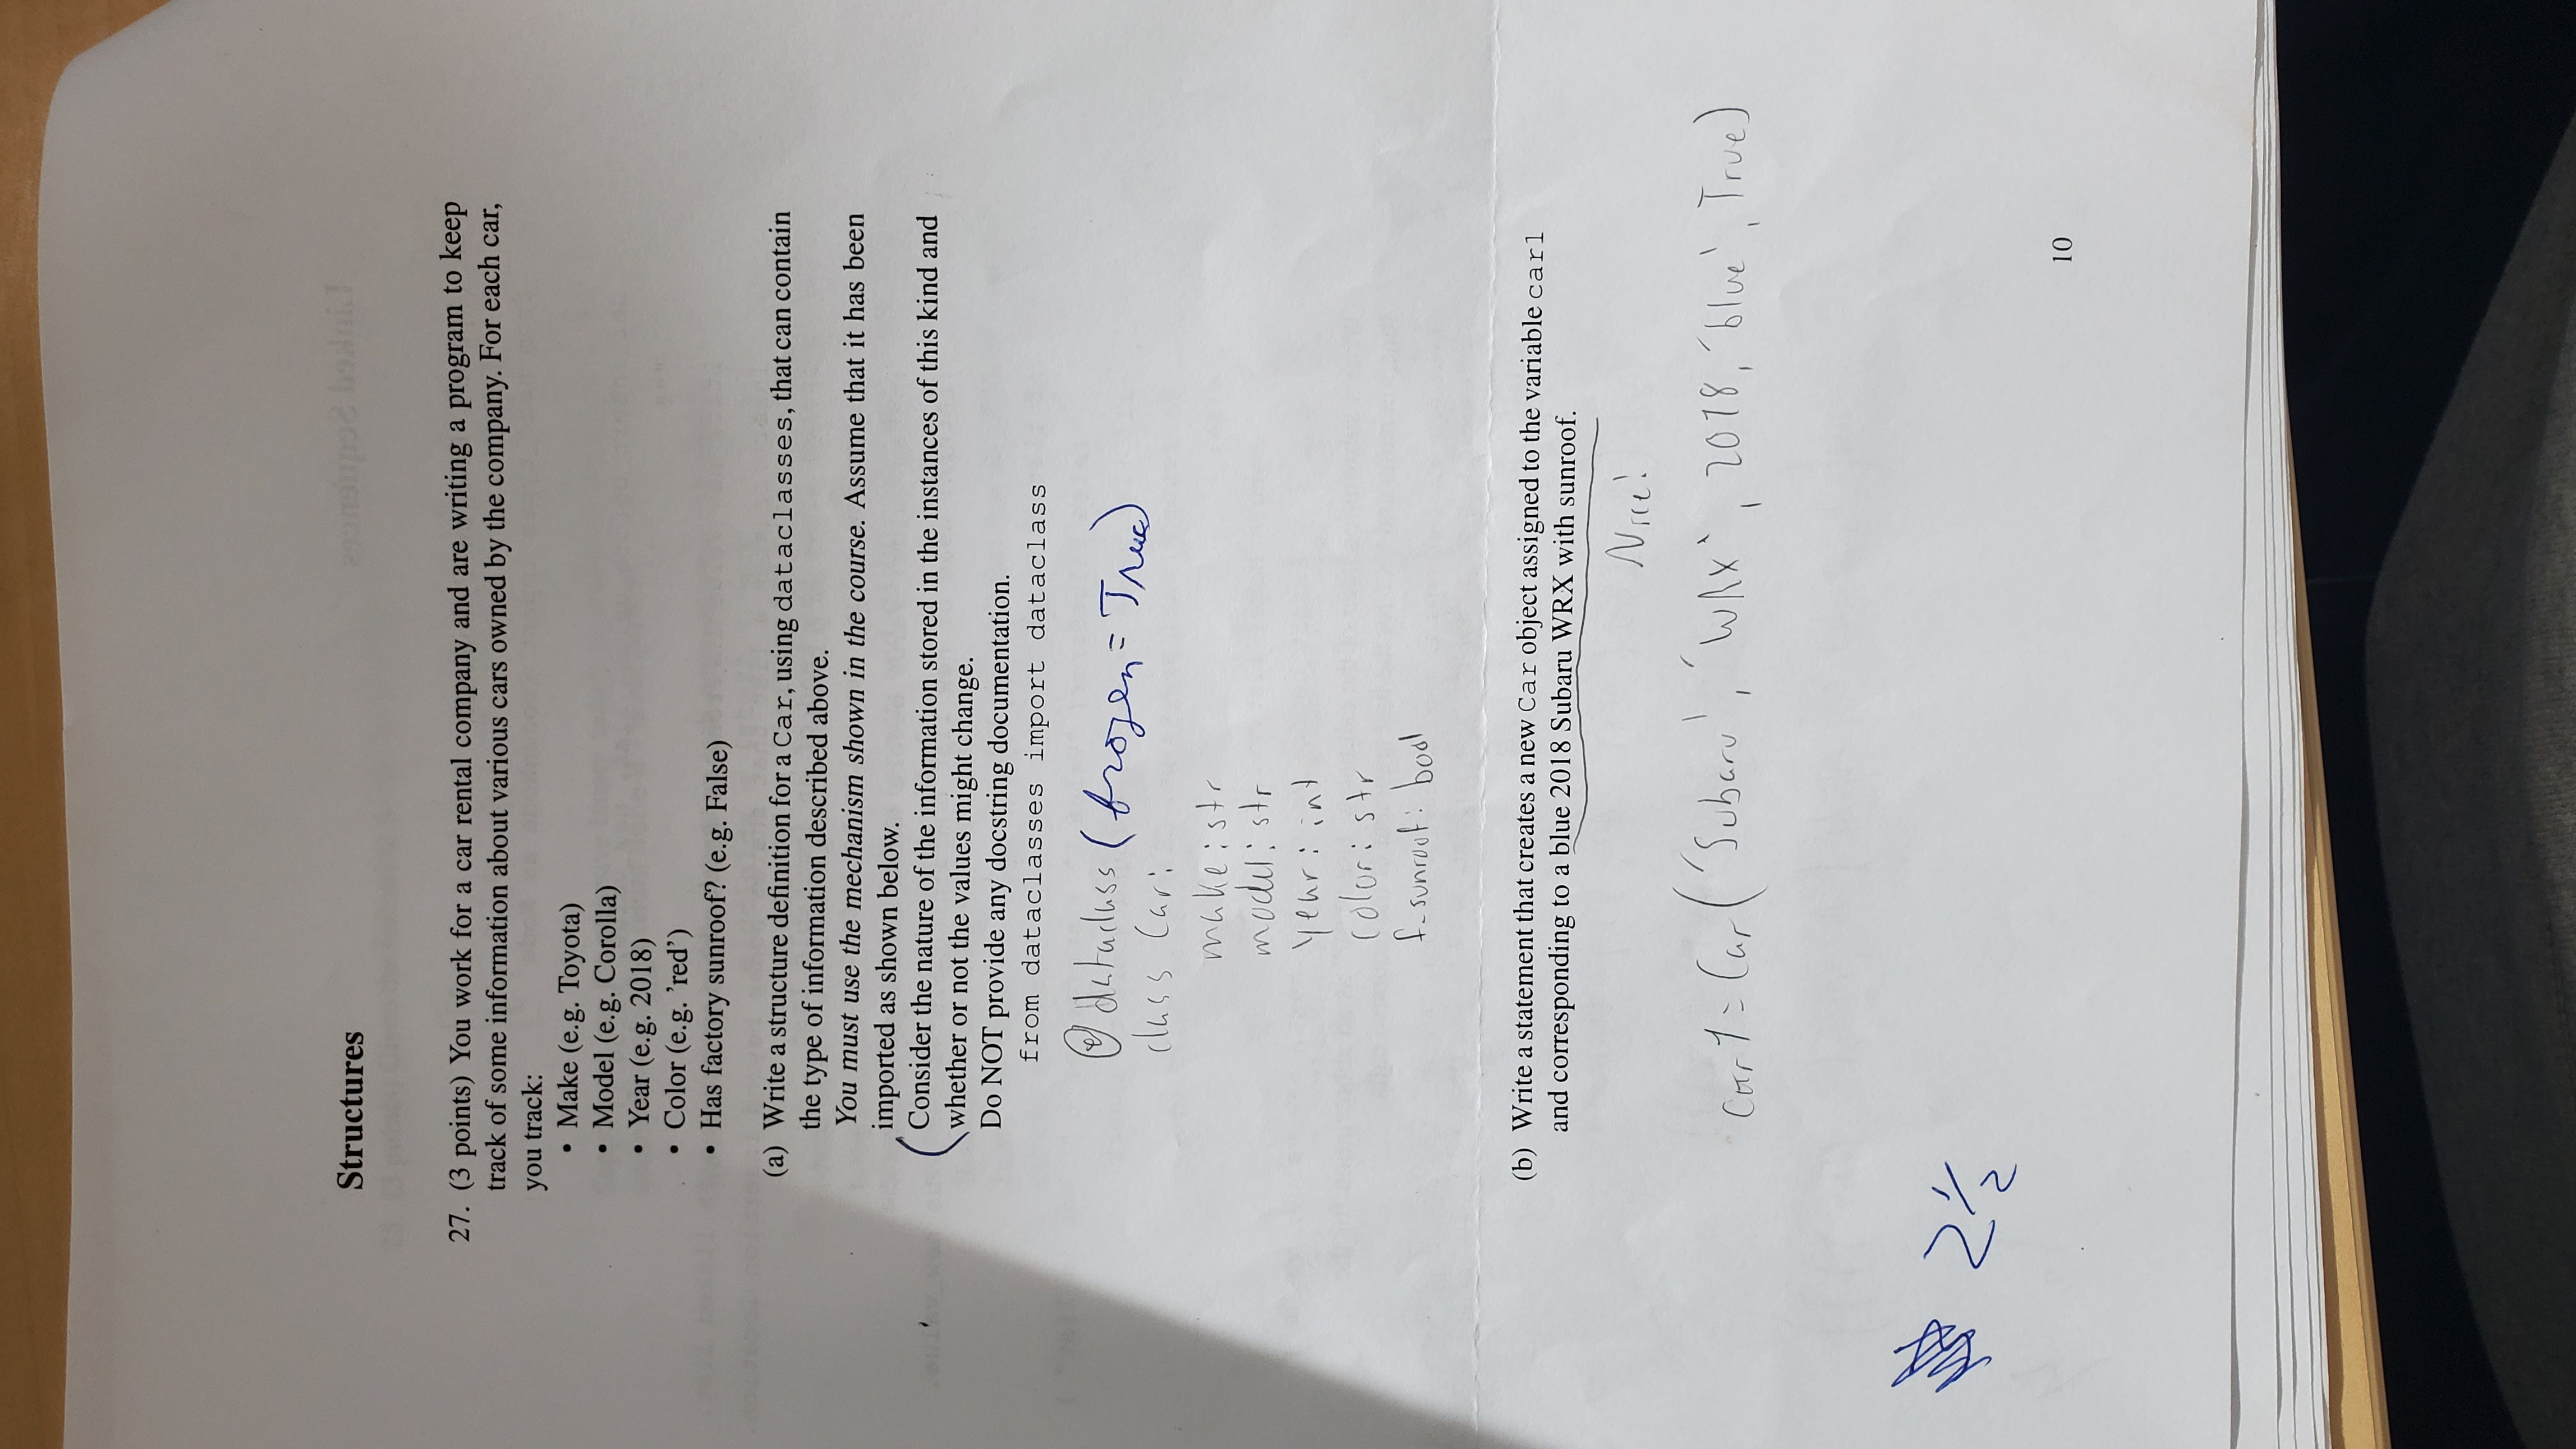 Structures
27. (3 points) You work for a car rental company and are writing a program to keep
track of some information about various cars owned by the company. For each car,
you track:
• Make (e.g. Toyota)
• Model (e.g. Corolla)
• Year (e.g. 2018)
• Color (e.g. 'red')
• Has factory sunroof? (e.g. False)
(a) Write a structure definition for a Car, using dataclasses, that can contain
the type of information described above.
You must use the mechanism shown in the course. Assume that it has been
imported as shown below.
Consider the nature of the information stored in the instances of this kind and
whether or not the values might change.
Do NOT provide any docstring documentation.
from dataclasses import dataclass
@dataclass (frozen=True)
class Car:
make: str
model: str
year: int
color: str
f_sunroof: bool
(b) Write a statement that creates a new Car object assigned to the variable car1
and corresponding to a blue 2018 Subaru WRX with sunroof.
Nice!
car1 = Car('Subaru', 'WRX', 2018, 'blue', True)
2 1/2
10